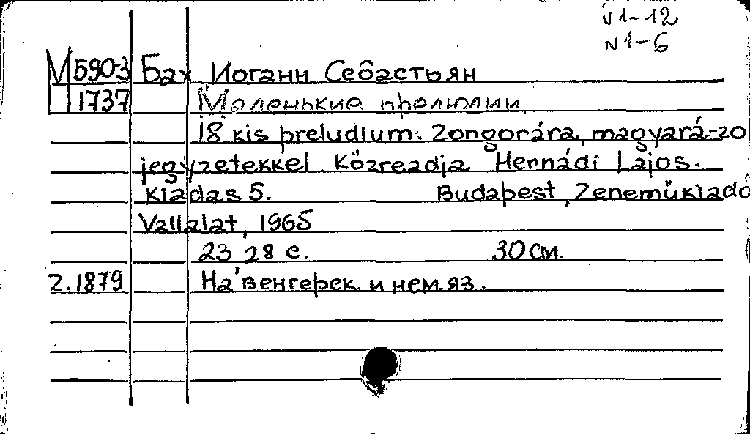 N 1-12
N 1-6
М 590-3 Бах Иоганн Себастьян
1737 Маленькие прелюдии
18 kis preludium. Zongorára, magyará-zo
jegyzetekkel közreadja Hernádi Lajos.
kiadas 5. Budapest, Zenemükiado
Vallalat, 1965
23 28 с. 30 см.
2.1879 На венгерск. и нем.яз.